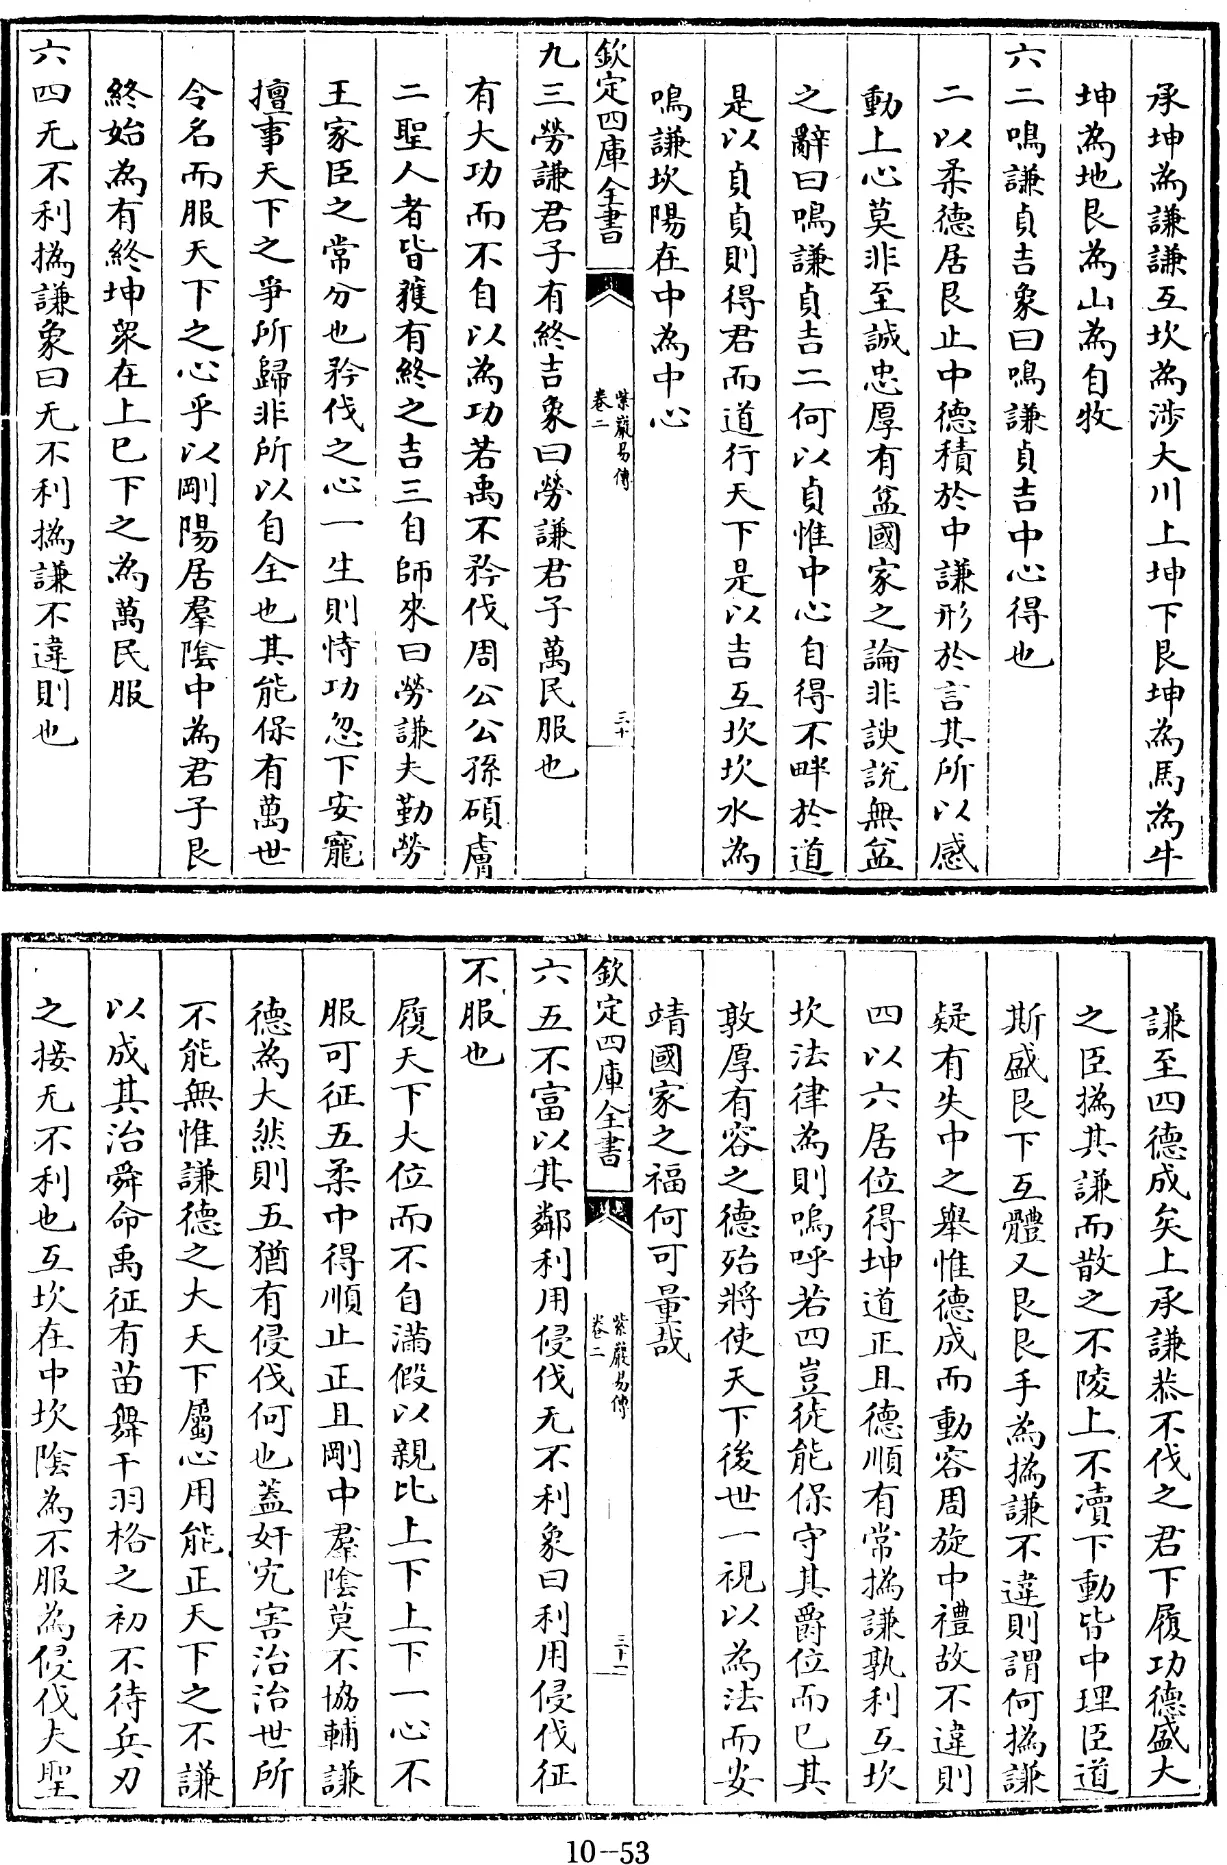 承坤為謙謙互坎為涉大川上坤下艮坤為馬為牛
坤為地艮為山為自牧
六二鳴謙貞吉象曰鳴謙貞吉中心得也
二以柔德居艮止中德積於中謙形於言其所以感
動上心莫非至誠忠厚有益國家之論非諛說無益
之辭曰鳴謙貞吉二何以貞惟中心自得不畔於道
是以貞貞則得君而道行天下是以吉互坎坎水為
鳴謙坎陽在中為中心
欽定四庫全書
紫巖易傳
卷二
三十
九三勞謙君子有終吉象曰勞謙君子萬民服也
有大功而不自以為功若禹不矜伐周公公孫碩膚
二聖人者皆獲有終之吉三自師來曰勞謙夫勤勞
王家臣之常分也矜伐之心一生則恃功忽下安寵
擅事天下之爭所歸非所以自全也其能保有萬世
令名而服天下之心乎以剛陽居羣陰中為君子艮
終始為有終坤衆在上已下之為萬民服
六四无不利撝謙象曰无不利撝謙不違則也
謙至四德成矣上承謙恭不伐之君下履功德盛大
之臣撝其謙而散之不陵上不瀆下動皆中理臣道
斯盛艮下互體又艮艮手為撝謙不違則謂何撝謙
疑有失中之舉惟德成而動容周旋中禮故不違則
四以六居位得坤道正且德順有常撝謙孰利互坎
坎法律為則嗚呼若四豈徒能保守其爵位而已其
敦厚有容之德殆將使天下後世一視以為法而安
靖國家之福何可量哉
欽定四庫全書
紫巖易傳
卷二
三十一
六五不富以其鄰利用侵伐无不利象曰利用侵伐征
不服也
履天下大位而不自滿假以親比上下上下一心不
服可征五柔中得順止正且剛中羣陰莫不協輔謙
德為大然則五猶有侵伐何也蓋奸宄害治治世所
不能無惟謙德之大天下屬心用能正天下之不謙
以成其治舜命禹征有苗舞干羽格之初不待兵刃
之接无不利也互坎在中坎陰為不服為侵伐夫聖
10--53